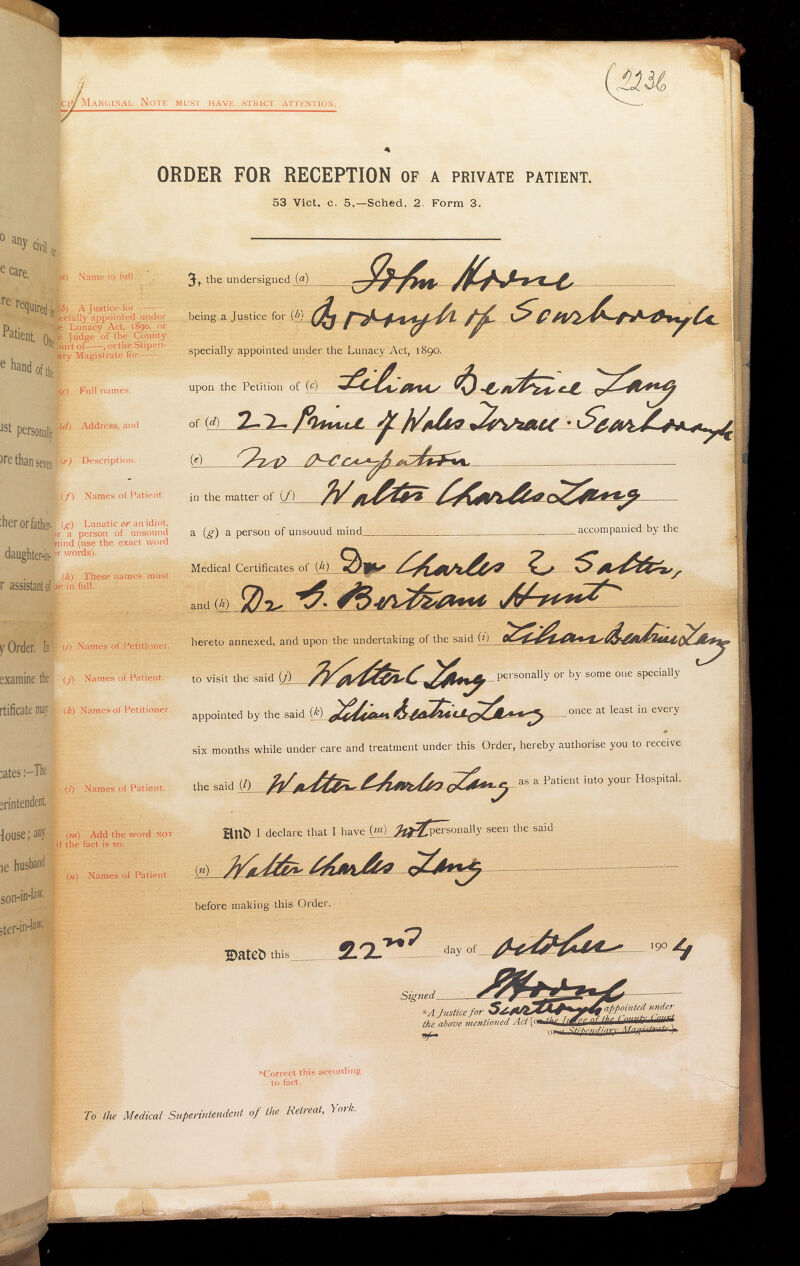 (2236
MARGINAL NOTE MUST HAVE STRICT ATTENTION.
ORDER FOR RECEPTION OF A PRIVATE PATIENT.
53 Vict. c. 5.—Sched. 2 Form 3.
Name in full.
I, the undersigned (a) John Hoone
(b) A Justice for
specially appointed under
Lunacy Act, 1890, or
Judge of the County
Court of——, or the Stipen-
ary Magistrate for——
being a Justice for (b) Borough of Scarborough
specially appointed under the Lunacy Act, 1890.
(c) Full names.
upon the Petition of (c) Lilian Beatrice Lang
(d) Address, and
of (d) 22 Prince of Wales Terrace · Scarborough
(e) Description.
(e) No occupation
(f) Names of Patient.
in the matter of (f) Walter Charles Lang
(g) Lunatic or an idiot,
or a person of unsound
mind (use the exact word
or words).
a (g) a person of unsound mind accompanied by the
(h) These names must
be in full.
Medical Certificates of (h) Dr Charles E Salter,
and (h) Dr G. Bertram Hunt
(i) Names of Petitioner.
hereto annexed, and upon the undertaking of the said (i) Lilian Beatrice Lang
(j) Names of Patient.
to visit the said (j) Walter C Lang personally or by some one specially
(k) Names of Petitioner.
appointed by the said (k) Lilian Beatrice Lang once at least in every
six months while under care and treatment under this Order, hereby authorise you to receive
(l) Names of Patient.
the said (l) Walter Charles Lang as a Patient into your Hospital.
(m) Add the word NOT
if the fact is so.
And I declare that I have (m) not personally seen the said
(n) Names of Patient
(n) Walter Charles Lang
before making this Order.
Dated this 22nd day of October 1904
Signed J Hoone
*A Justice for Scarborough appointed under
the above mentioned Act [or the Judge of the County Court
of or a Stipendiary Magistrate].
*Correct this according
to fact.
To the Medical Superintendent of the Retreat, York.
o any civil or
e care.
re required
Patient. One
e hand of the
ist personally
ore than seven
her or father-
daughter-in-
r assistant of
y Order. In
examine the
rtificate may
cates:—The
erintendent,
House; any
he husband
son-in-law,
ster-in-law.